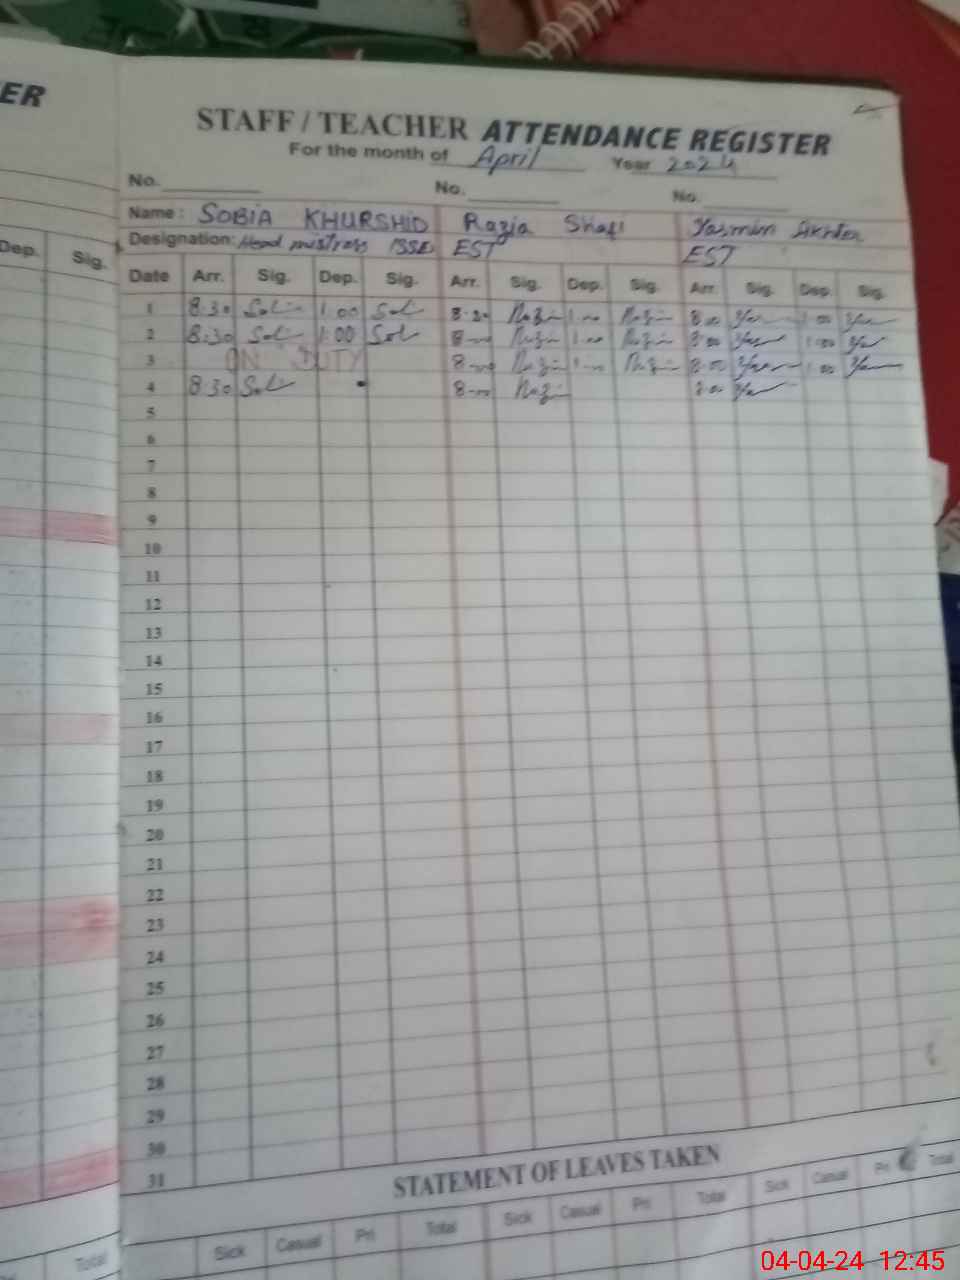 ER
STAFF / TEACHER ATTENDANCE REGISTER
For the month of April Year 2024
No. No. No.
Name: SOBIA KHURSHID Razia Shafi Yasmim Akhter
Designation: Head mistress EST EST
Dep. Sig. Date Arr. Sig. Dep. Sig. Arr. Sig. Dep. Sig. Arr. Sig. Dep. Sig.
1 8:30 Sol 1:00 Sol 8:30 Razia 1:00 Razia 8:00 Yas 1:00 Yas
2 8:30 Sol 1:00 Sol 8:00 Razia 1:00 Razia 8:00 Yas 1:00 Yas
3 ON DUTY 8:00 Razia 1:00 Razia 8:00 Yas 1:00 Yas
4 8:30 Sol 8:00 Razia 8:00 Yas
5
6
7
8
9
10
11
12
13
14
15
16
17
18
19
20
21
22
23
24
25
26
27
28
29
30
31
STATEMENT OF LEAVES TAKEN
Total Sick Casual Pri Total Sick Casual Pri Total Sick Casual Pri Total
04-04-24 12:45